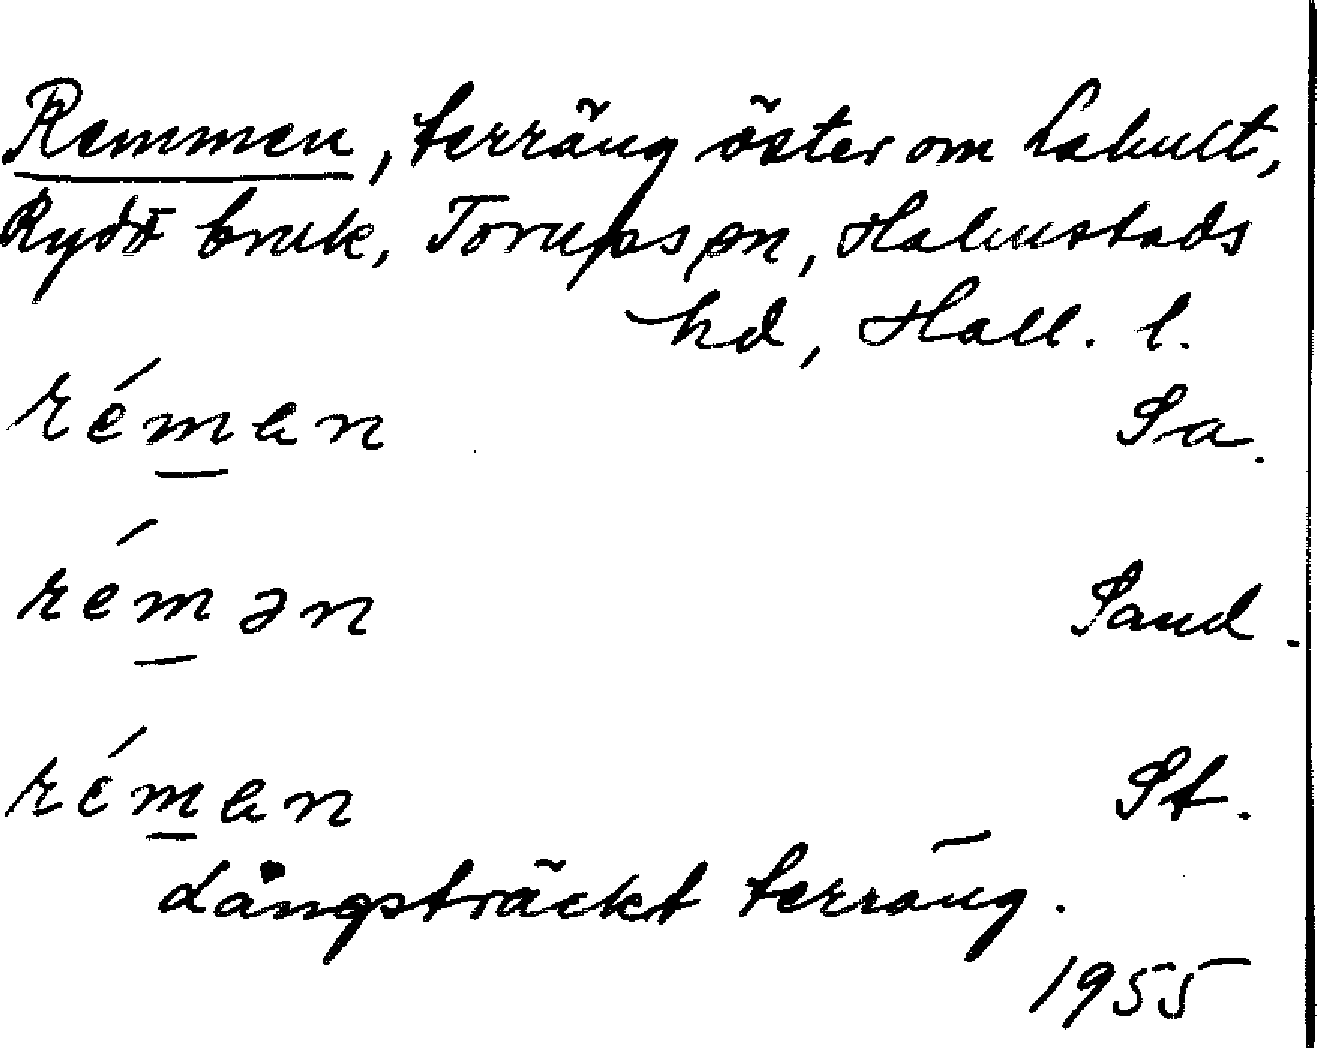 Remmen, terräng öster om Labult,
Rydö bruk, Torups sn, Halmstads
hd, Hall. l.
réman Sa.
rémən Sand.
réman St.
Långsträckt terräng.
1955